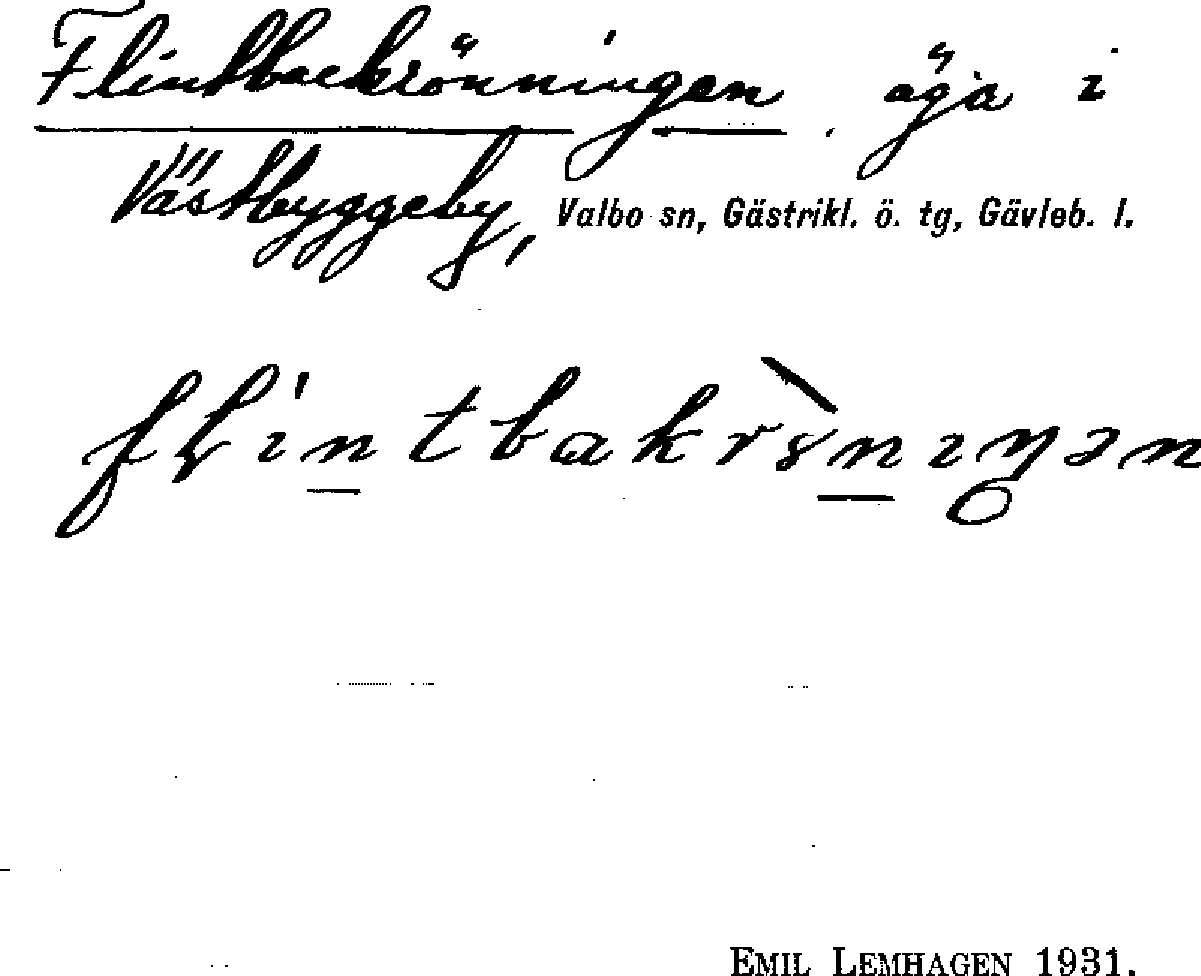 Flintbackrönningen, äga i
Västbyggeby, Valbo sn, Gästrikl. ö. tg, Gävleb. l.
EMIL LEMHAGEN 1931.